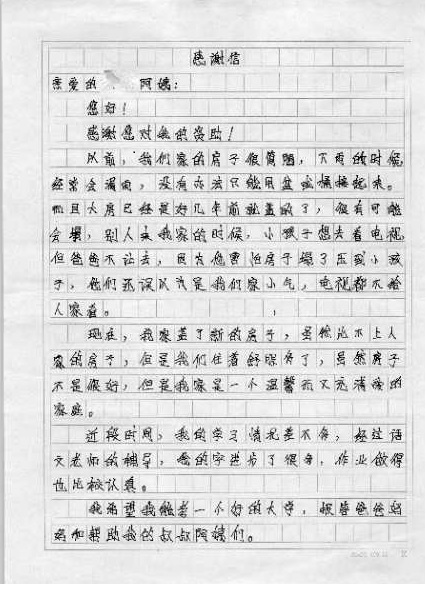 感谢信
亲爱的 阿姨：
您好！
感谢您对我的资助！
以前，我们家的房子很简陋，下雨的时候
经常会漏雨，没有办法只能用盆或桶接起来。
而且大房已经是好几年前就盖的了，很有可能
会塌，别人来我家的时候，小孩子想去看电视
但爸爸不让去，因为他害怕房子塌了压到小孩
子，他们还误以为是我们家小气，电视都不给
人家看。
现在，我家盖了新的房子，虽然比不上人
家的房子，但是我们住着舒服多了，虽然房子
不是很好，但是我家是一个温馨而又充满爱的
家庭。
近段时间，我的学习情况差不多，经过语
文老师的辅导，我的字进步了很多，作业做得
也比较认真。
我希望我能考一个好的大学，报答爸爸妈
妈和帮助我的叔叔阿姨们。